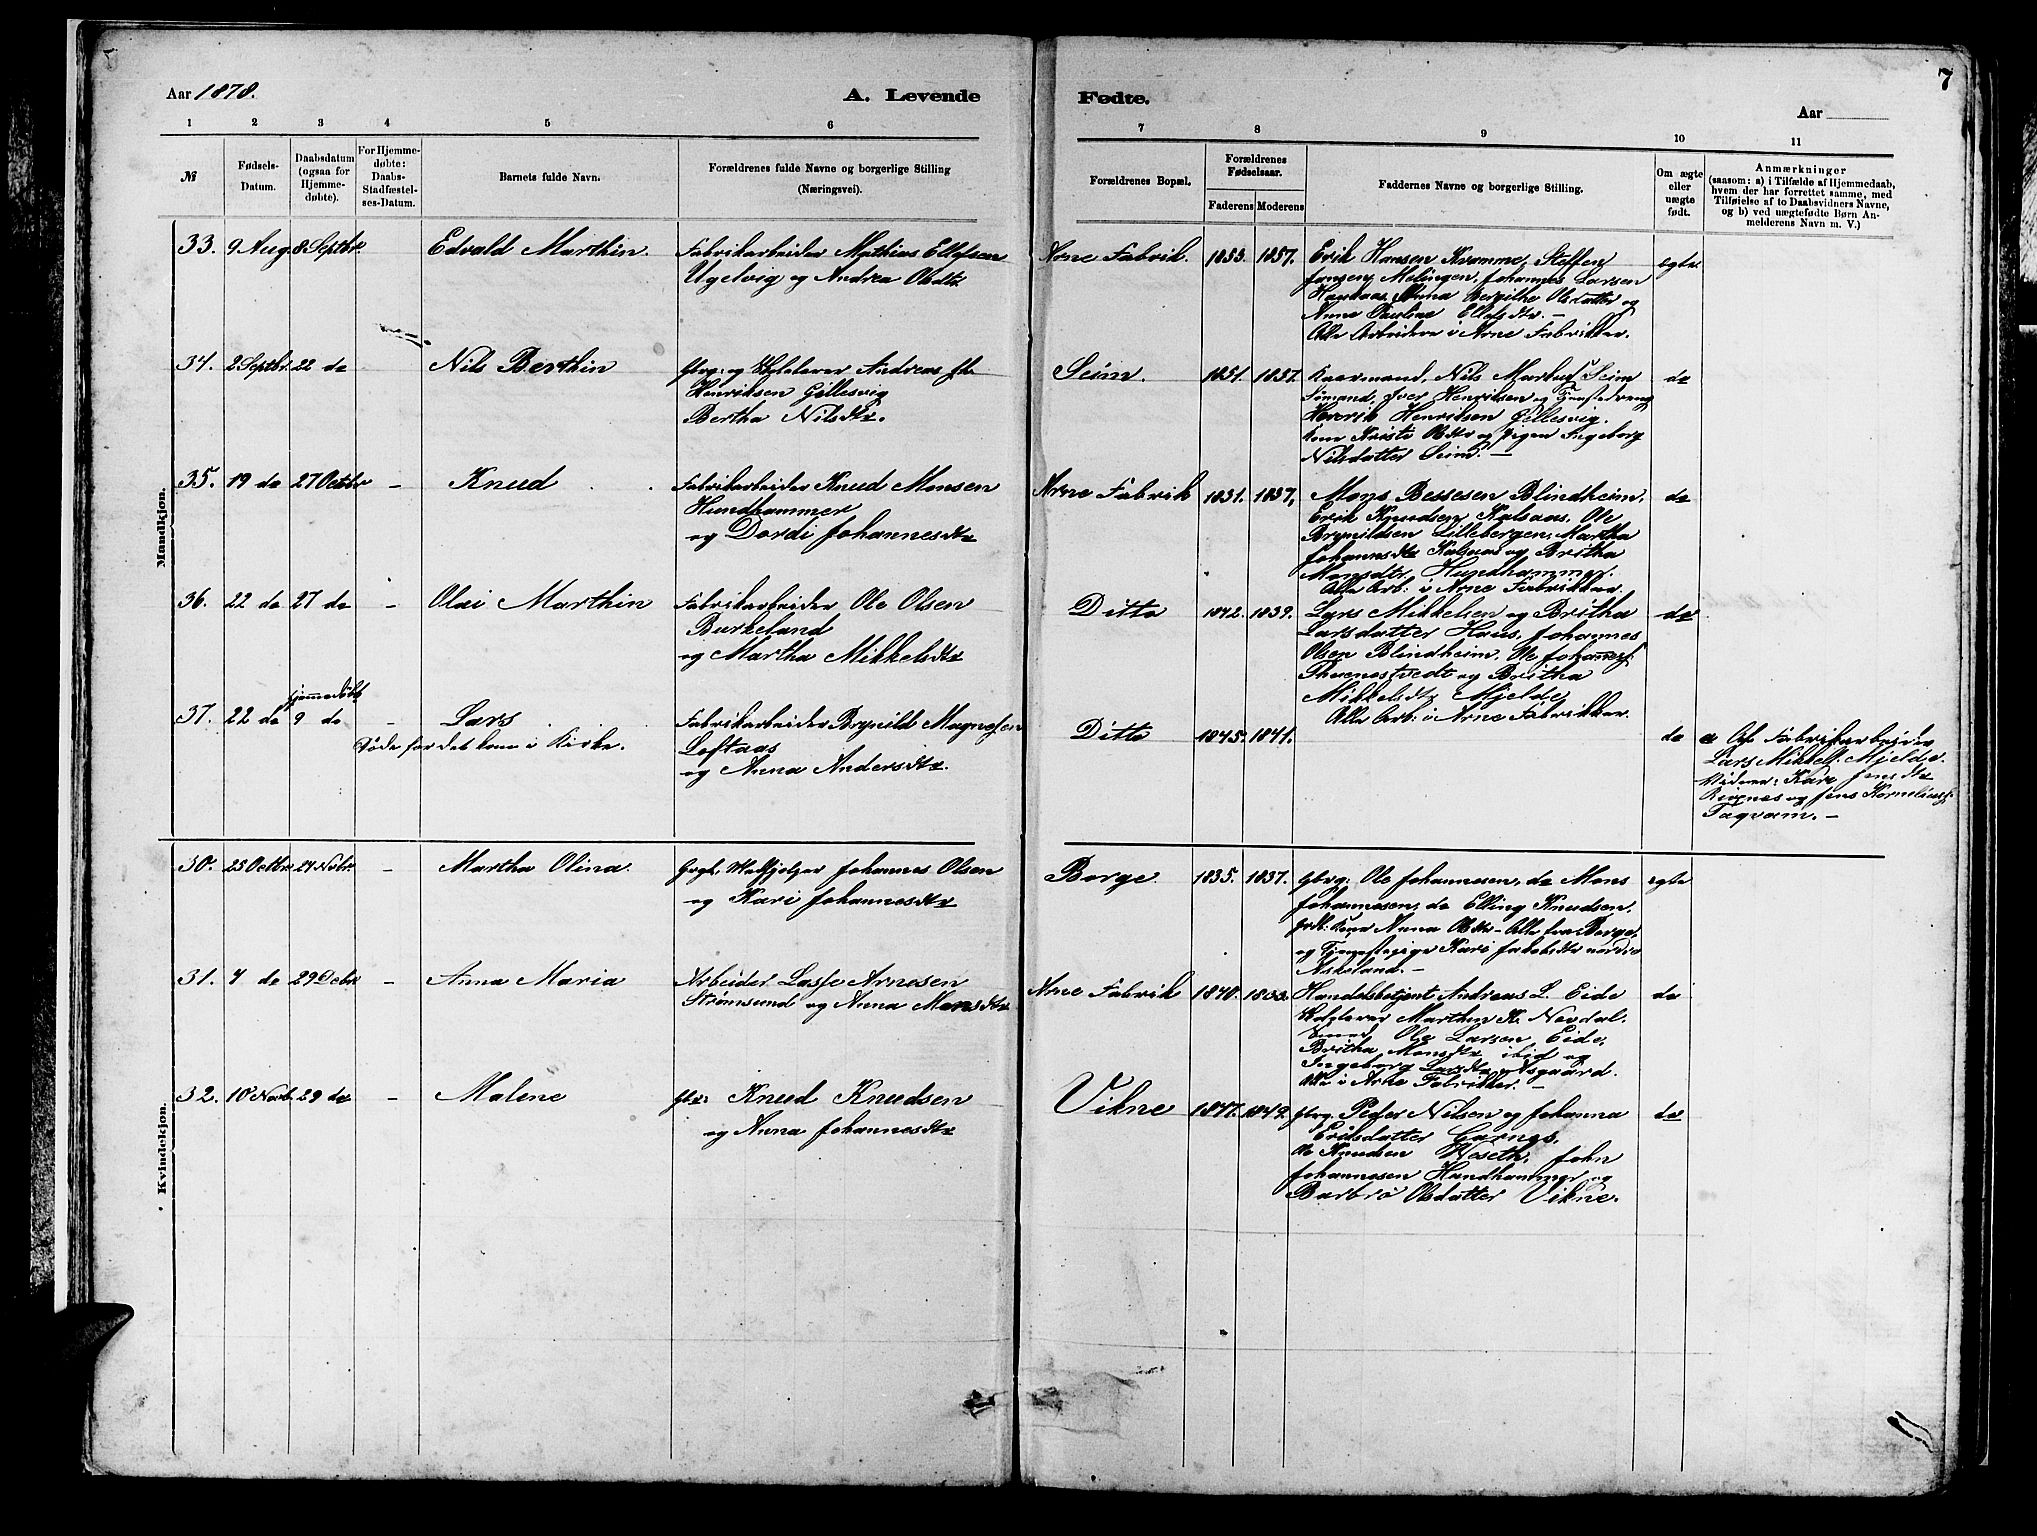 Aar 1878.
A. Levende
Fødte.
Aar
7
1 2 3 4 5 6
7 8 9 10 11
№
Fødsels-
Datum.
Daabsdatum
(ogsaa for
Hjemme-
døbte).
For Hjemme-
døbte:
Daabs-
Stadfæstel-
ses-Datum.
Barnets fulde Navn.
Forældrenes fulde Navne og borgerlige Stilling
(Næringsvei).
Forældrenes Bopæl.
Forældrenes
Fødselsaar.
Faderens Moderens
Faddernes Navne og borgerlige Stilling.
Om ægte
eller
uægte
født.
Anmærkninger
(saasom: a) i Tilfælde af Hjemmedaab,
hvem der har forrettet samme, med
Tilføielse af to Daabsvidners Navne,
og b) ved uægtefødte Børn An-
melderens Navn m. V.)
Mandkjøn.
33. 9 Aug. 8 Septbr. Edvald Marthin. Fabrikarbeider Mathias Ellefsen
Ugelvig og Andrea Olsdtr
Arne Fabrik. 1853. 1857. Erik Hansen Kvamme, Steffen
Jansen Melingen, Johannes Larsen
Haukaas, Anna Bergithe Olsdatter og
Anne Pauline Ellefsdtr. –
Alle Arbeidere i Arne Fabrikker.
egte.
34. 2 Septbr. 22 do Nils Berthin Gbrg: og Andreas
Henriksen Gillesvig
Bertha Nilsdtr.
Seim. 1851. 1857. Kaarmand, Nils Seim
Sømand, Iver Henriksen og Tjenestedreng
Henrik Henriksen Gillesvig.
Kone Kristi Olsdtr og Pigen Ingeborg
Nilsdatter Seim. –
do
35. 19 do 27 Octbr – Knud Fabrikarbeider Knud Monsen
Hundhammer
og Dordi Johannesdtr
Arne Fabrik 1831. 1837, Mons Bessesen Blindheim,
Erik Knudsen Kalsaas, Ole
Brynildsen Lillebergen, Martha
Johannesdtr Kalsaas og Britha
Monsdtr. Hundhammer.
Alle Arb: i Arne Fabrikker.
do
36. 22 do 27 do – Olai Marthin Fabrikarbeider Ole Olsen
Burkeland
og Martha Mikkelsdtr
Ditto 1842. 1839. Lars Mikkelsen og Britha
Larsdatter Haus, Johannes
Olsen Blindheim, Ole Johannesf.
og Britha
Mikkelsdtr Mjelde
Alle Arb: i Arne Fabrikker.
do
37. 22 do Hjemmedøbt 9 do – Lars. Fabrikarbeider Brynild Magnesen
Loftaas
og Anna Andersdtr.
Døde før det kom i Kirke.
Ditto 1845. 1841. do a Af Fabrikarbeider
Lars Mikkels. Mjelde.
Vidner: Kari Jensdtr
og Jens Korneliusf.
Tagvam. –
Kvindekjøn.
30. 25 Octbr 24 Novbr. – Martha Olina. Johannes Olsen
og Kari Johannesdtr
Borge. 1835. 1837. Gbrg: Ole Johannesen, do Mons
Johannesen, do Elling Knudsen.
Kone Anna Olsdtr – Alle fra Borge.
og Tjenestepige Kari Jakobsdtr nordre
Askeland. –
egte
31. 4 do 29 Debr – Anna Maria Arbeider Lasse Arnesen
Strømsund og Anna Monsdtr
Arne Fabrik 1840. 1833. Handelsbetjent Andreas L. Eide
Marthin K. Nevdal.
Ole Larsen Eide,
Britha Monsdtr ibid og
Ingeborg Larsdtr Aasgaard.
Alle i Arne Fabrikker. –
do
32. 18 Novb. 29 do – Malene Knud Knudsen
og Anna Johannesdtr
Vikne 1847. 1849. Gbrg. Peder Nilsen og Johanna
Eriksdatter Garnes.
Ole Knudsen Weseth, John
Johannesen Hundhammer og
Barbro Olsdatter Vikne.
do